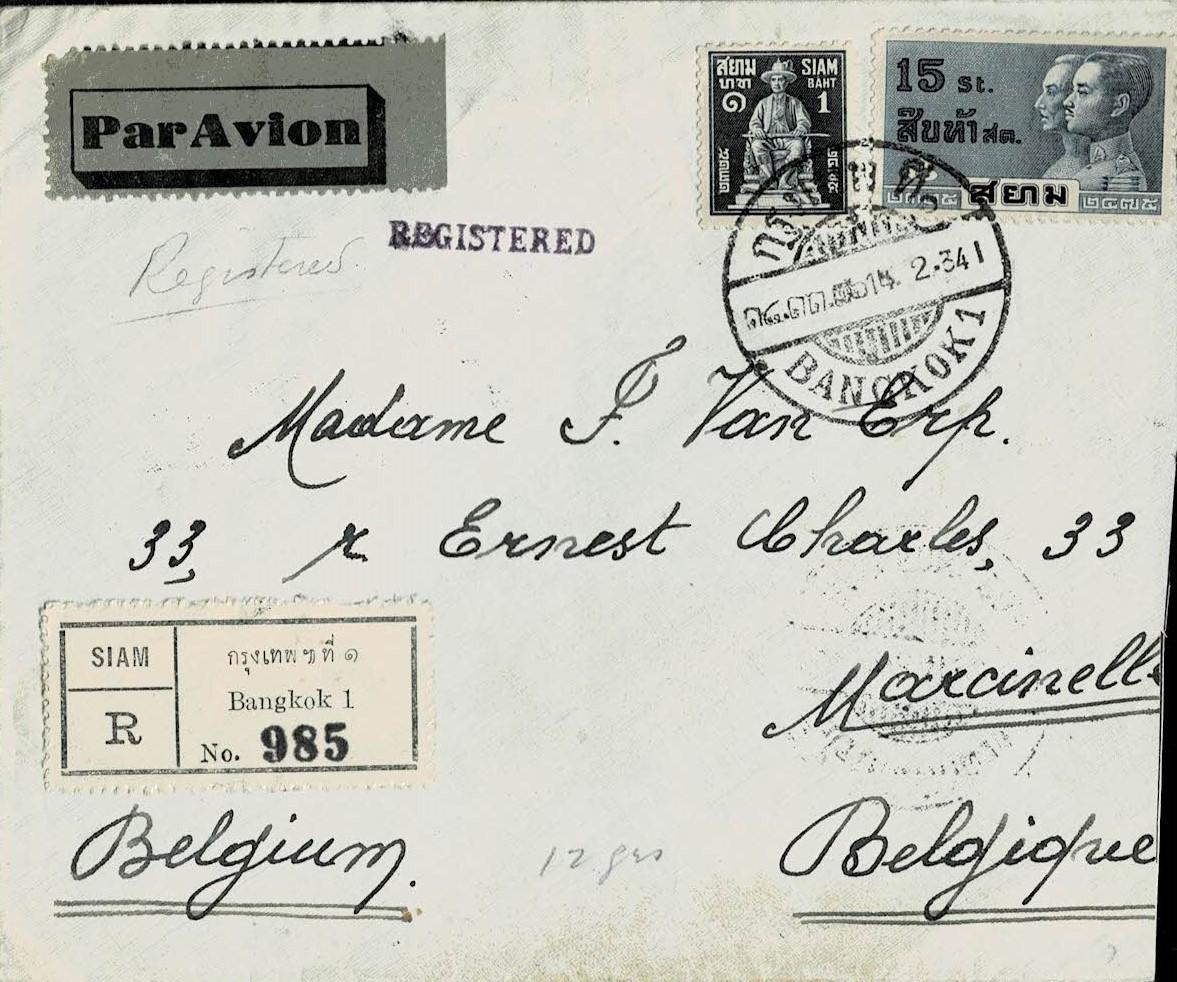 Par Avion
สยาม SIAM
บาท BAHT
๑ 1
15 st.
สิบห้า สต.
๒๓๒๕ สยาม ๒๔๗๕
REGISTERED
Registered
14. 2. 34 1
BANGKOK 1
Madame F. Van Erp.
33, r Ernest Charles, 33
SIAM
R
กรุงเทพฯ ที่ ๑
Bangkok 1
No. 985
Marcinelle
Belgium.
12 grs
Belgique